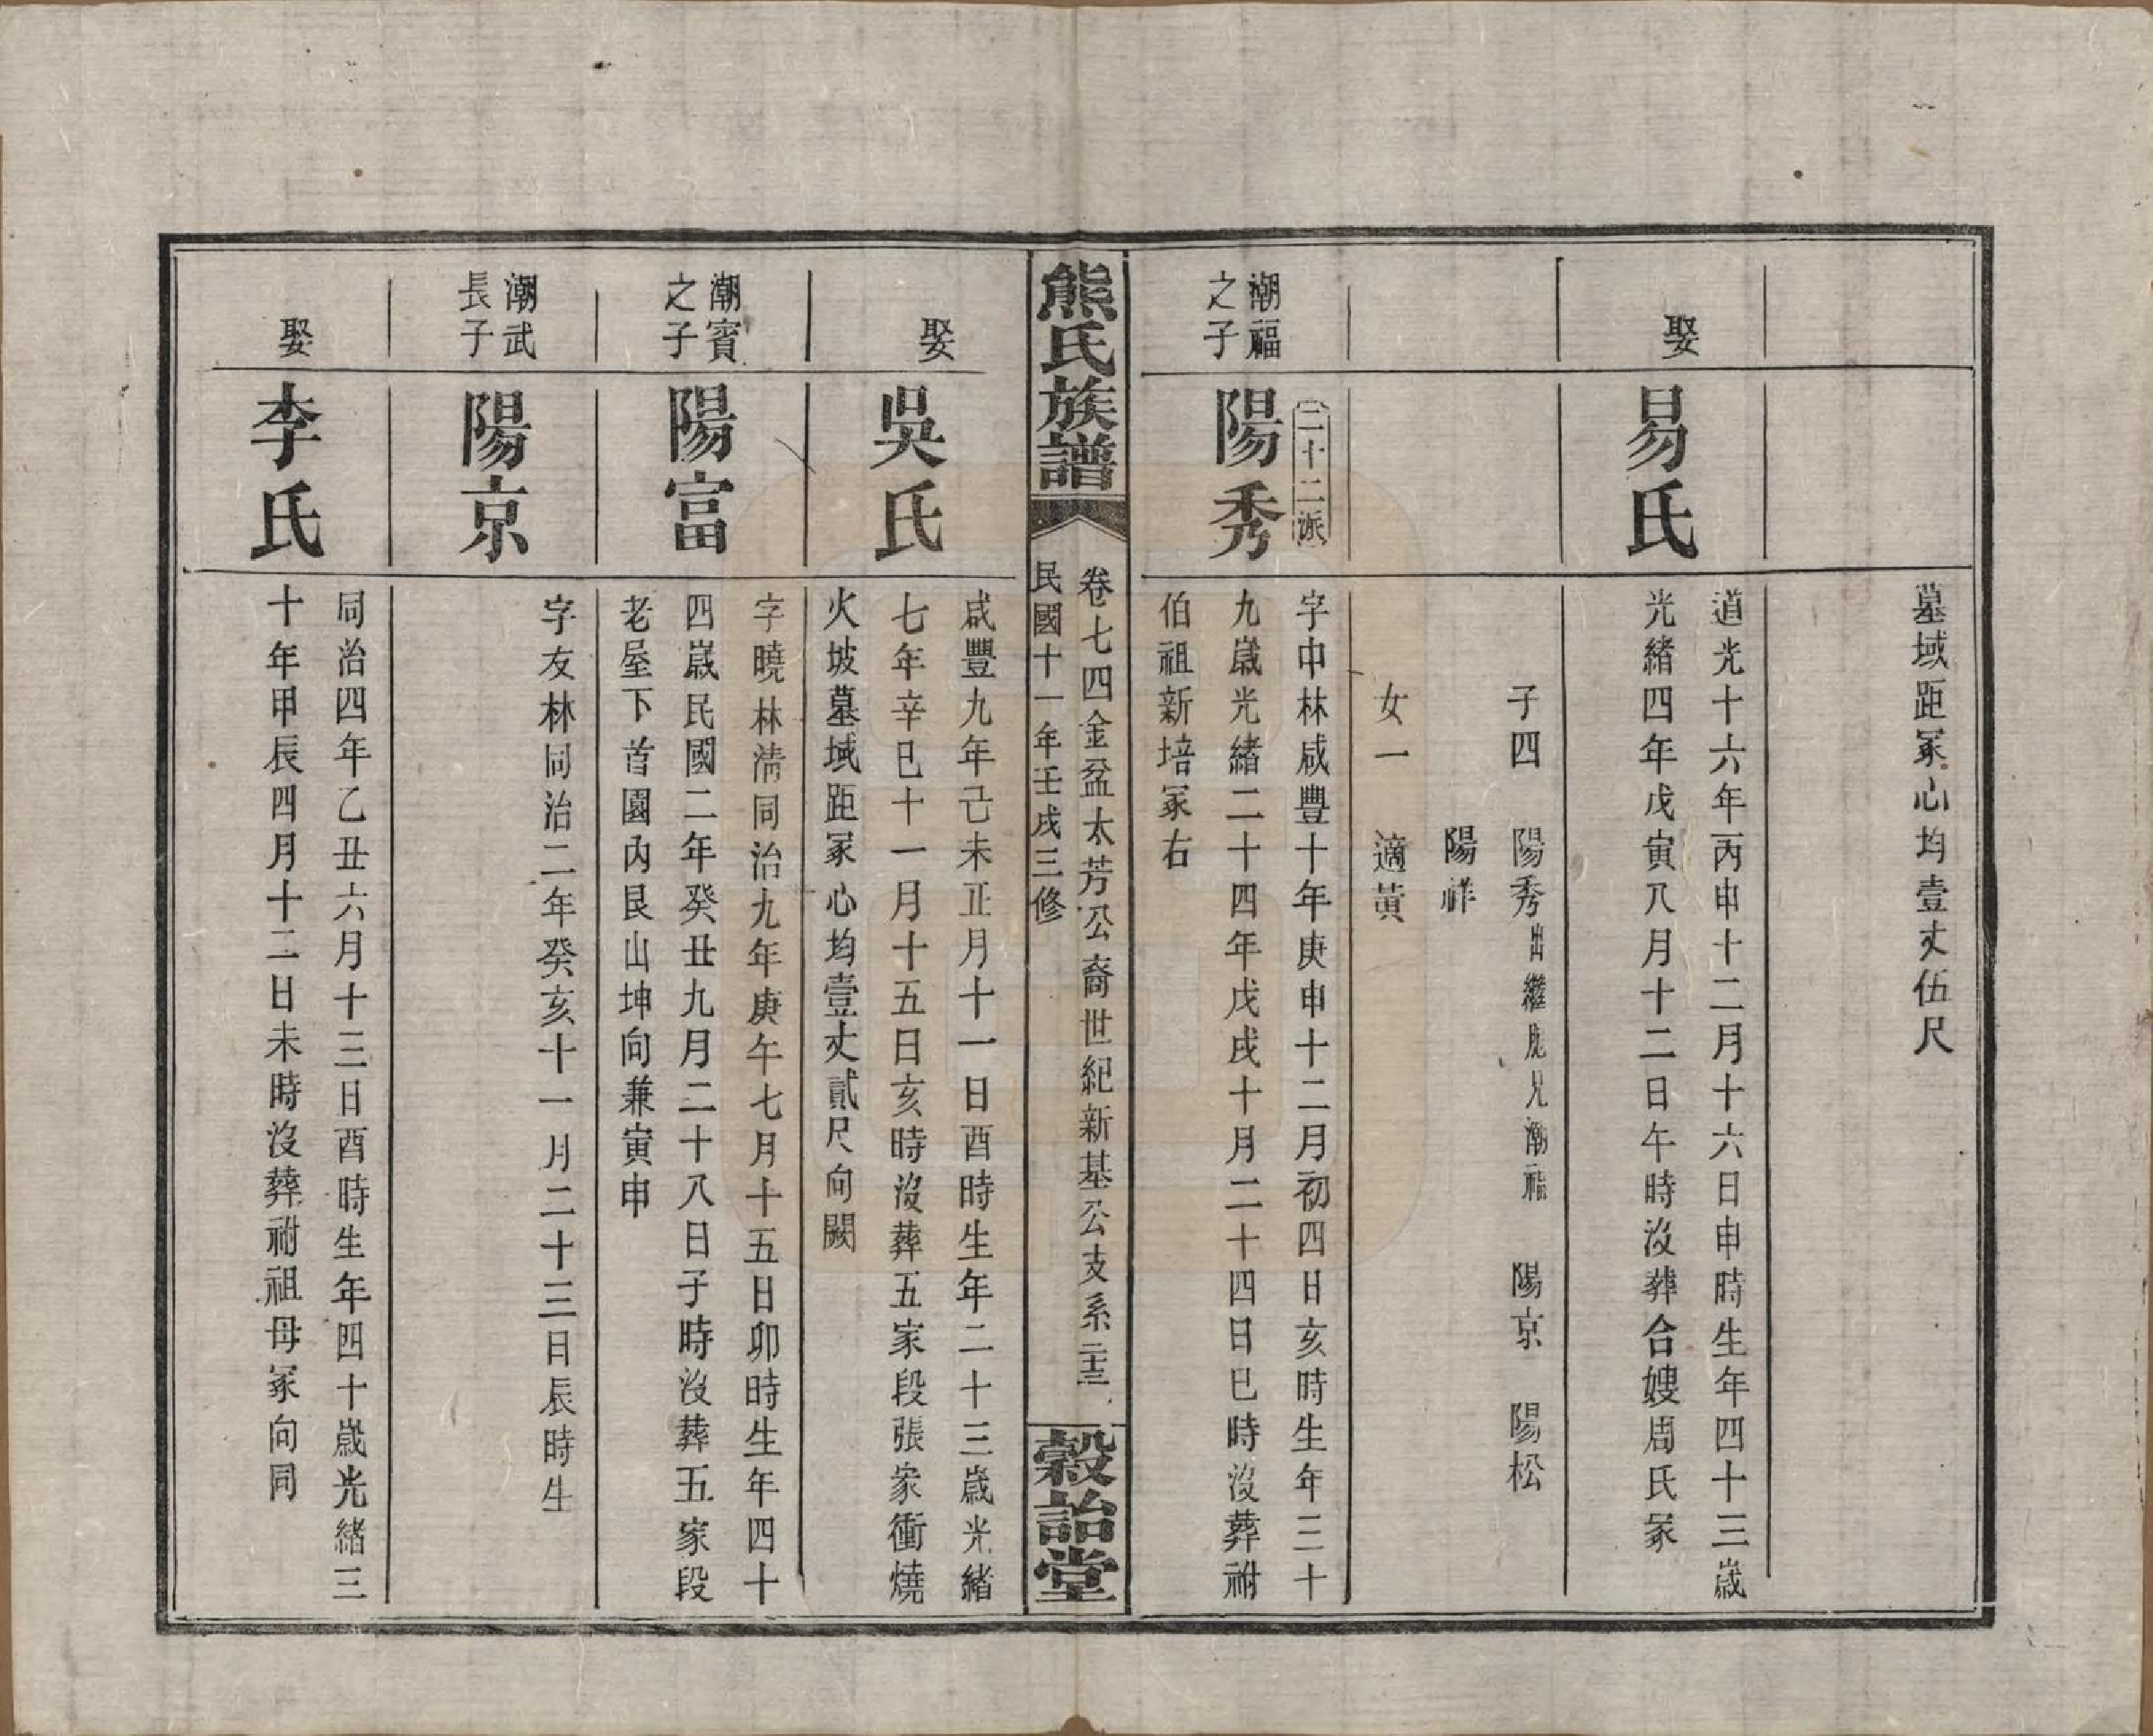 墓域距冢心均壹丈伍尺
娶
易氏
道光十六年丙申十二月十六日申時生年四十三歲
光緒四年戊寅八月十二日午時沒葬合嫂周氏冢
子四 陽秀出繼胞兄潮福 陽京 陽松
陽祥
女一 適黃
二十二派
潮福
之子
陽秀
字中林咸豐十年庚申十二月初四日亥時生年三十
九歲光緒二十四年戊戌十月二十四日巳時沒葬祔
伯祖新培冢右
熊氏族譜
卷七四金盆太芳公裔世紀新基公支系二十三
民國十一年壬戌三修
穀詒堂
娶
吳氏
咸豐九年己未正月十一日酉時生年二十三歲光緒
七年辛巳十一月十五日亥時沒葬五家段張家衝燒
火坡墓域距冢心均壹丈貳尺向闕
潮賓
之子
陽富
字曉林清同治九年庚午七月十五日卯時生年四十
四歲民國二年癸丑九月二十八日子時沒葬五家段
老屋下首園內艮山坤向兼寅申
潮武
長子
陽京
字友林同治二年癸亥十一月二十三日辰時生
娶
李氏
同治四年乙丑六月十三日酉時生年四十歲光緒三
十年甲辰四月十二日未時沒葬祔祖母冢向同